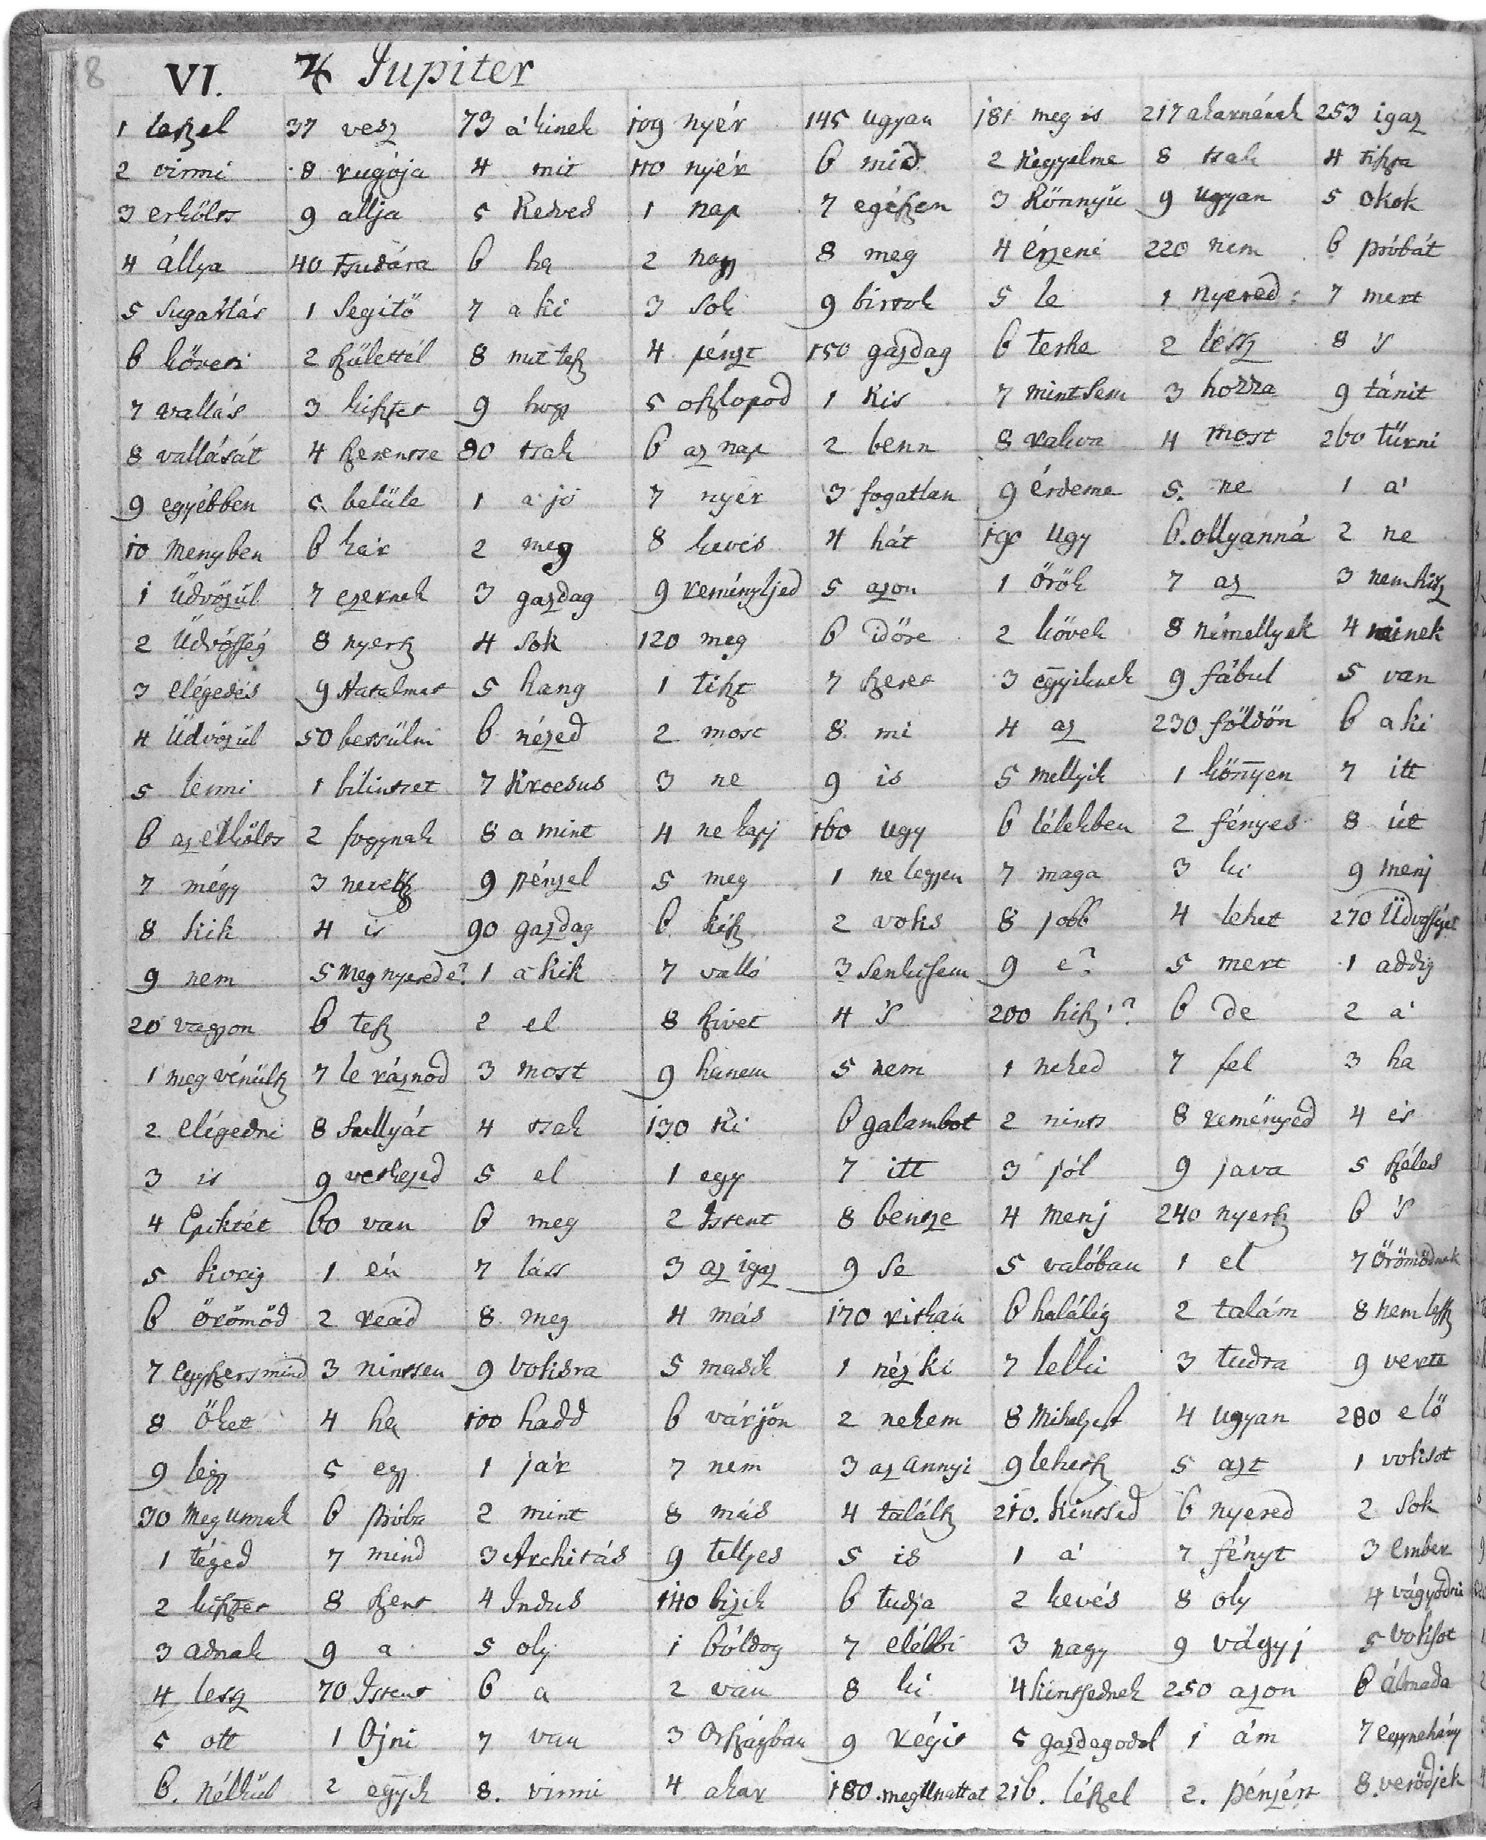 8 VI. ♃ Jupiter
1 leszel 37 vesz 73 a' kinek 109 nyér 145 ugyan 181 meg is 217 akarnának 253 igaz
2 virmi 8 rugója 4 mit 110 nyér 6 mid 2 Kegyelme 8 tsak 4 tiszta
3 erkölts 9 allja 5 Kedved 1 nap 7 egészen 3 Könnyü 9 ugyan 5 okok
4 állya 40 Tsudára 6 ha 2 nagy 8 meg 4 érzeni 220 nem 6 próbát
5 Sugarlás 1 Segitő 7 a ki 3 Sok 9 birtok 5 le 1 nyered: 7 mert
6 követi 2 születtél 8 mit tesz 4 pénzt 150 gazdag 6 teske 2 léssz 8 's
7 vallás 3 kiszter 9 hogy 5 oszlopod 1 Kis 7 mintsem 3 hozza 9 tánit
8 vallását 4 szerentse 80 tsak 6 az nap 2 benn 8 rakva 4 most 260 tűrni
9 egyébben 5 belüle 1 a' jó 7 nyér 3 fogatlan 9 érdeme 5. ne 1 a'
10 menyben 6 kár 2 meg 8 kevés 4 hát 190 Ugy 6. ollyanná 2 ne
1 Üdvözül 7 ezernek 3 gazdag 9 reményljed 5 azon 1 örök 7 az 3 nem hisz
2 Üdvösség 8 nyersz 4 Sok 120 meg 6 időre 2 kövek 8 némellyek 4 minek
3 elégedés 9 Hatalmas 5 hang 1 tiszt 7 szeret 3 eggyiknek 9 fábul 5 van
4 Üdvözül 50 bettsülni 6 nézed 2 most 8 mi 4 az 230 földön 6 a ki
5 lenni 1 bilintset 7 Kroesus 3 ne 9 is 5 mellyik 1 könnyen 7 itt
6 az erkölts 2 fogynak 8 a mint 4 ne kapj 160 ugy 6 lélekben 2 fényes 8 út
7 mégy 3 nevetsz 9 pénzel 5 meg 1 ne legyen 7 maga 3 ki 9 menj
8 kik 4 is 90 gazdag 6 kész 2 voks 8 jobb 4 lehet 270 Üdvösséget
9 nem 5 meg nyered e? 1 a' kik 7 valló 3 Senki sem 9 e? 5 mert 1 addig
20 vagyon 6 tesz 2 el 8 szivet 4 'S 200 hisz'? 6 de 2 a'
1 meg vénülsz 7 le ráznod 3 most 9 hanem 5 nem 1 neked 7 fel 3 ha
2 elégedni 8 Sullyát 4 tsak 130 Ki 6 galambot 2 nints 8 reményed 4 és
3 is 9 vetkezed 5 el 1 egy 7 itt 3 jól 9 java 5 széles
4 Epiktét 60 van 6 meg 2 Istent 8 bentze 4 menj 240 nyersz 6 'S
5 1 én 7 láss 3 az igaz 9 Se 5 valóban 1 el 7 örömödnek
6 örömöd 2 reád 8 meg 4 más 170 ritkán 6 halálig 2 talám 8 nem lessz
7 Egyszersmind 3 nintsen 9 voksra 5 masik 1 néz ki 7 lelki 3 tudta 9 verte
8 őket 4 ha 100 hadd 6 várjön 2 nekem 8 mihelyest 4 ugyan 280 elő
9 légy 5 egy 1 jár 7 nem 3 az annyi 9 lehetsz 5 azt 1 voksot
30 meg unnak 6 próba 2 mint 8 más 4 találsz 210. Kintsed 6 nyered 2 Sok
1 téged 7 mind 3 Architás 9 telljes 5 is 1 a' 7 fényt 3 ember
2 kiszter 8 szent 4 Indus 140 bizik 6 tudja 2 kevés 8 oly 4 vágyódni
3 adnak 9 a 5 oly 1 bóldog 7 élébbi 3 nagy 9 vágyj 5 voksot
4 lesz 70 Istent 6 a 2 van 8 ki 4 kintsednek 250 azon 6 álmada
5 ott 1 Ojni 7 van 3 Országban 9 Régis 5 gazdagodol 1 ám 7 egynehány
6. nélkül 2 egyik 8. virmi 4 akar 180. megUnattat 216. lészel 2. pénzért 8. verődjek